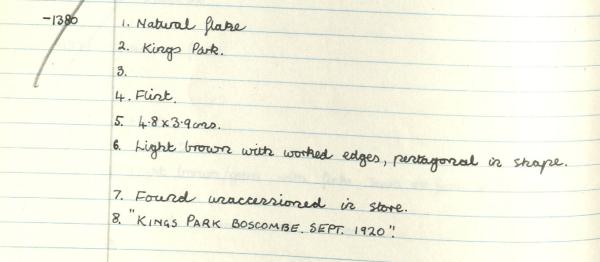 -1380 1. Natural flake
2. Kings Park.
3.
4. Flint.
5. 4.8 x 3.9 cms.
6. Light brown with worked edges, pentagonal in shape.
7. Found unaccessioned in store.
8. "KINGS PARK BOSCOMBE. SEPT. 1920".